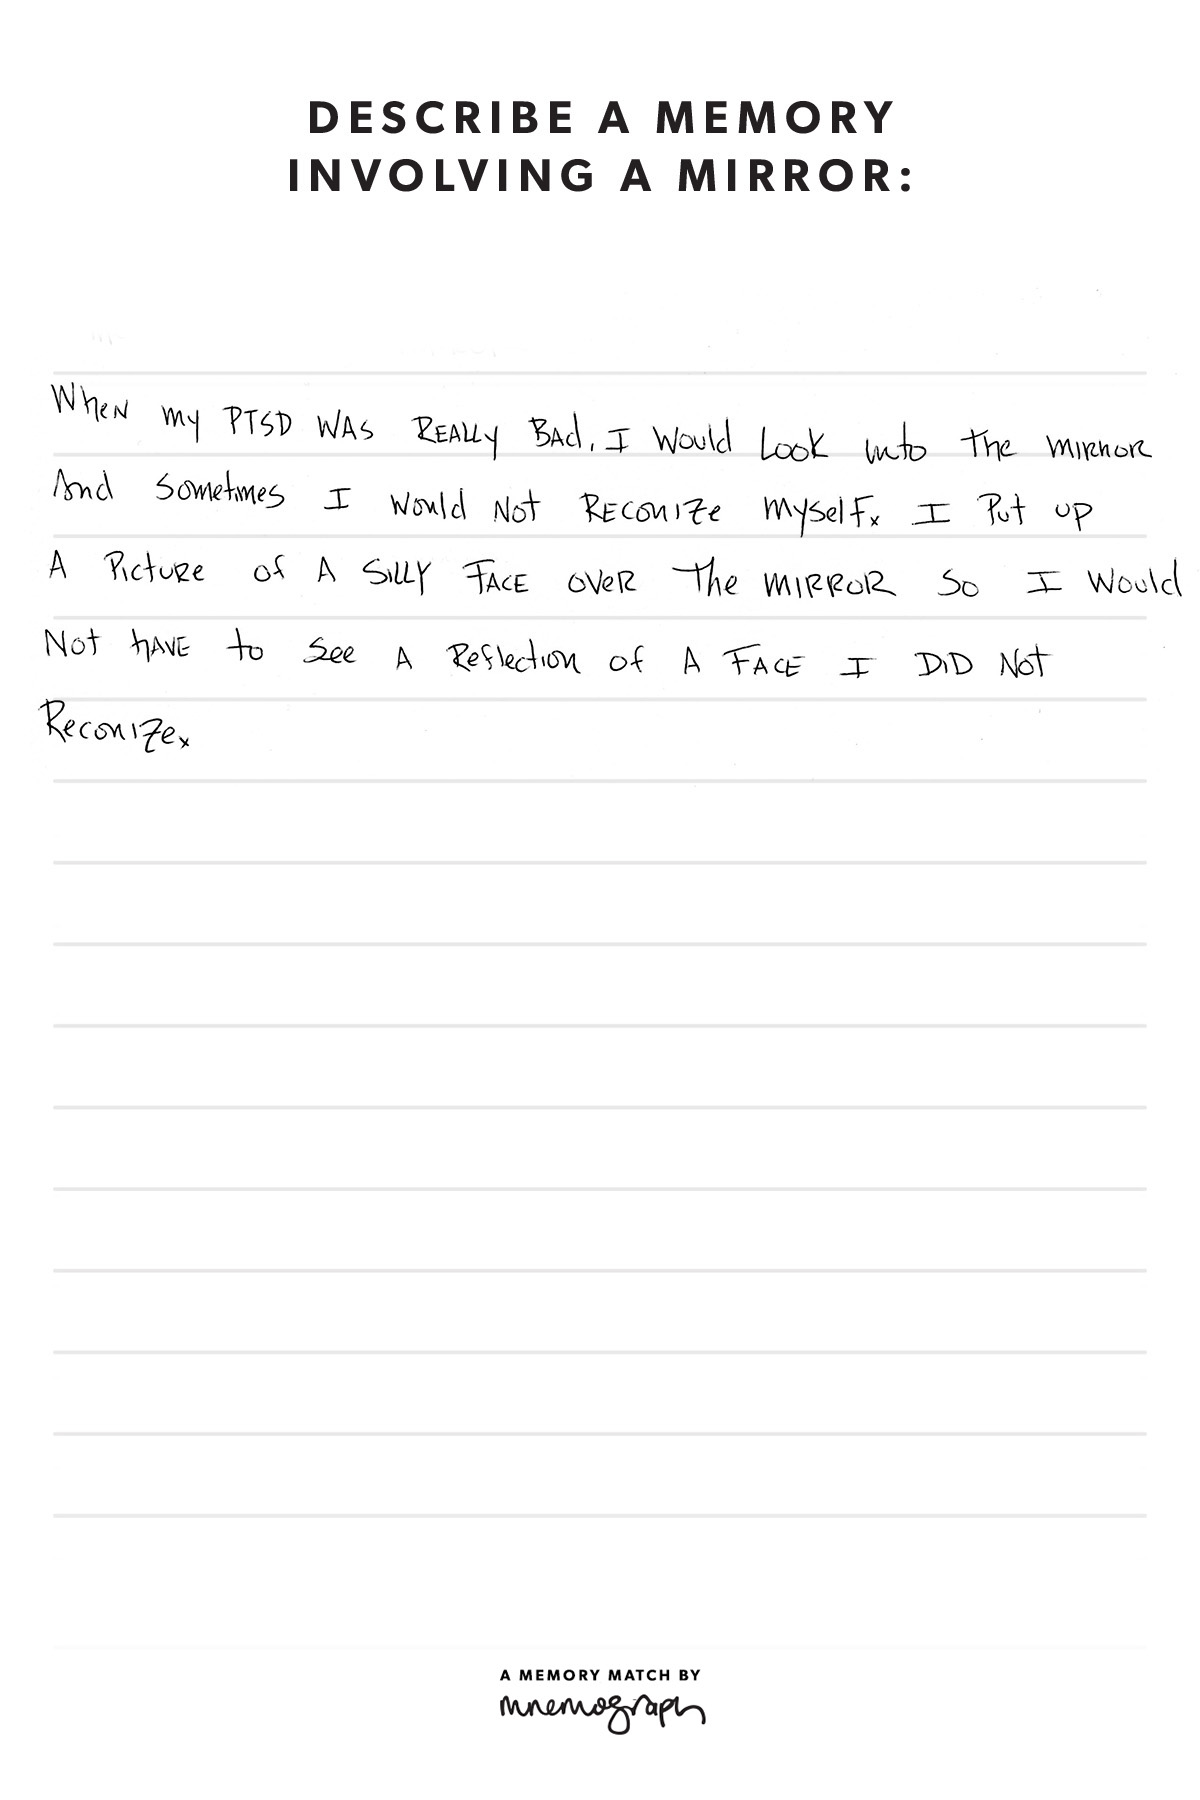 DESCRIBE A MEMORY
INVOLVING A MIRROR:
When my PTSD was really bad, I would look into the mirror
And sometimes I would not reconize myself. I put up
A picture of a silly face over the mirror so I would
Not have to see a reflection of a face I did not
Reconize.
A MEMORY MATCH BY
mnemograph